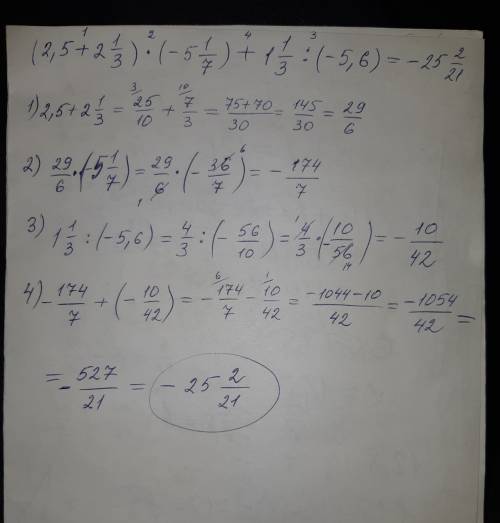 (2,5 + 2 1/3) · (-5 1/7) + 1 1/3 : (-5,6) = -25 2/21
1) 2,5 + 2 1/3 = 25/10 + 7/3 = 75+70/30 = 145/30 = 29/6
2) 29/6 · (-5 1/7) = 29/6 · (- 36/7) = - 174/7
3) 1 1/3 : (-5,6) = 4/3 : (- 56/10) = 4/3 · (- 10/56) = - 10/42
4) - 174/7 + (- 10/42) = - 174/7 - 10/42 = -1044-10/42 = -1054/42 =
= - 527/21 = - 25 2/21